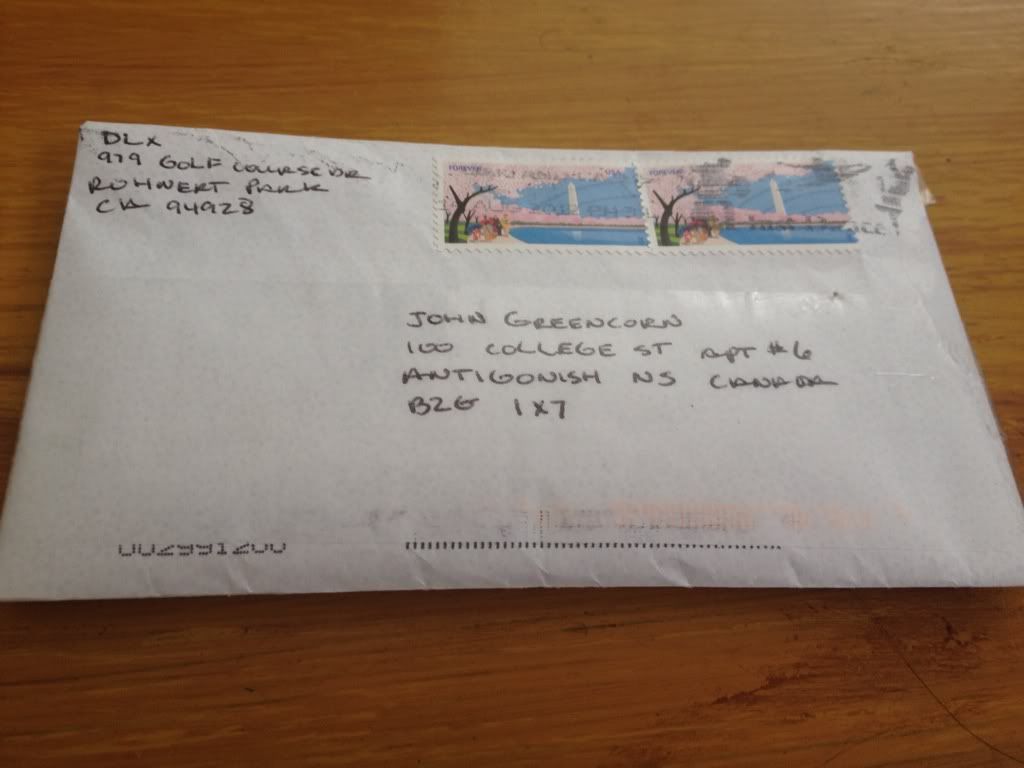 DLX
979 GOLF COURSE DR
ROHNERT PARK
CA 94928
FOREVER USA
FOREVER
JOHN GREENCORN
100 COLLEGE ST APT #6
ANTIGONISH NS CANADA
B2G 1X7